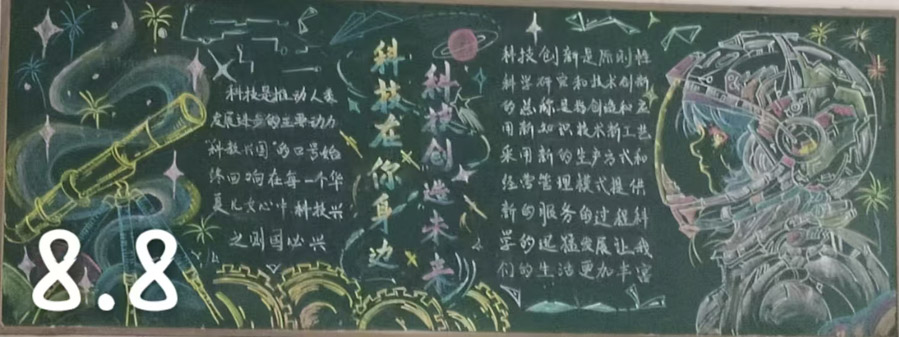 科技是推动人类
发展进步的主要动力
"科教兴国"的口号始
终回响在每一个华
夏儿女心中 科技兴
之国国必兴
科技在你身边
科技创造未来
科技创新是原创性
科学研究和技术创新
的总称是指创造和应
用新知识技术新工艺
采用新的生产方式和
经营管理模式提供
新的服务的过程科
学的迅猛发展让我
们的生活更加丰富
8.8